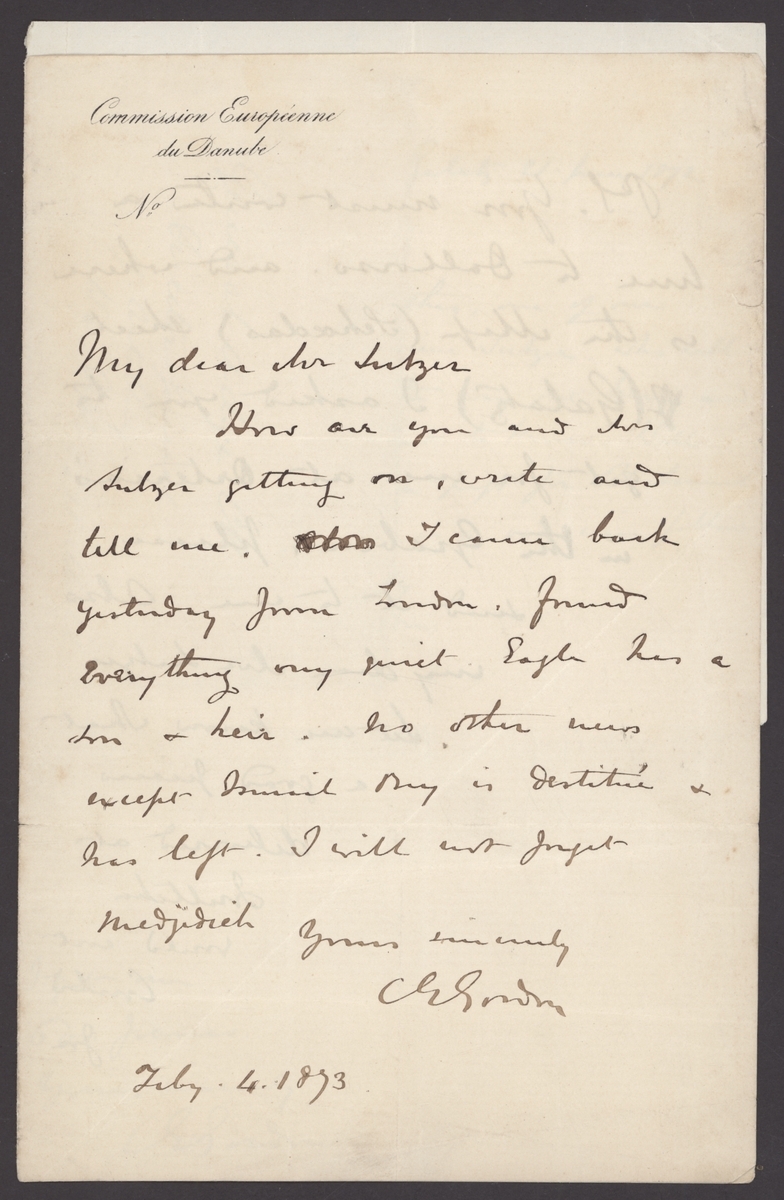 Commission Européenne
du Danube
No
My dear Mr Sutzer
How are you and Mrs
Sutzer getting on, write and
tell me. I came back
yesterday from London. found
everything very quiet. Eagle has a
son & heir. No other news
except Ismail Bey is destitué &
has left. I will not forget
Medjidieh
Yours sincerely
C G Gordon
Feby. 4. 1873